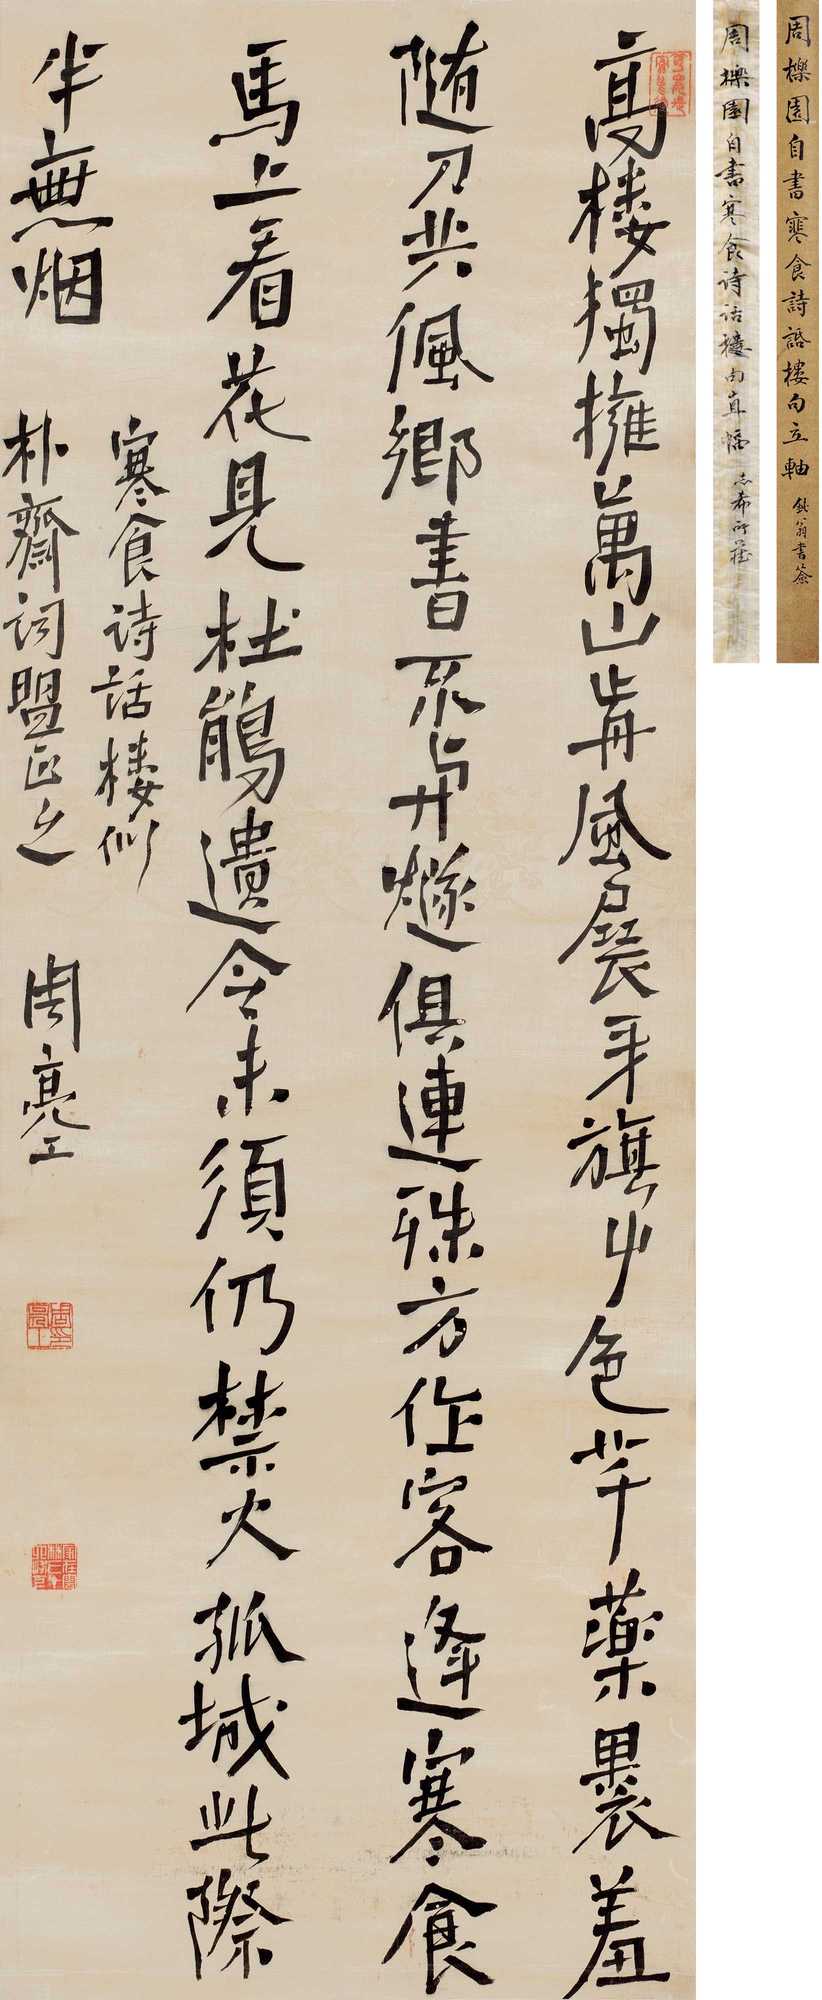 高樓獨擁萬山前風展牙旗艸色芊藥裹羞
隨刀共佩鄉書不與燧俱連殊方作客逢寒食
馬上看花見杜鵑遺令未須仍禁火孤城此際
半無烟
寒食詩話樓似
朴齋詞盟正之
周亮工
周櫟園自書寒食诗话樓句直幅 志希所藏
周櫟園自書寒食詩話樓句立軸 鈍翁書簽